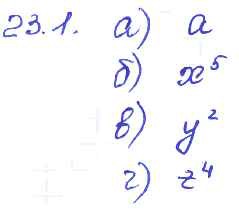 23.1. а) a
б) x⁵
в) y²
г) z⁴